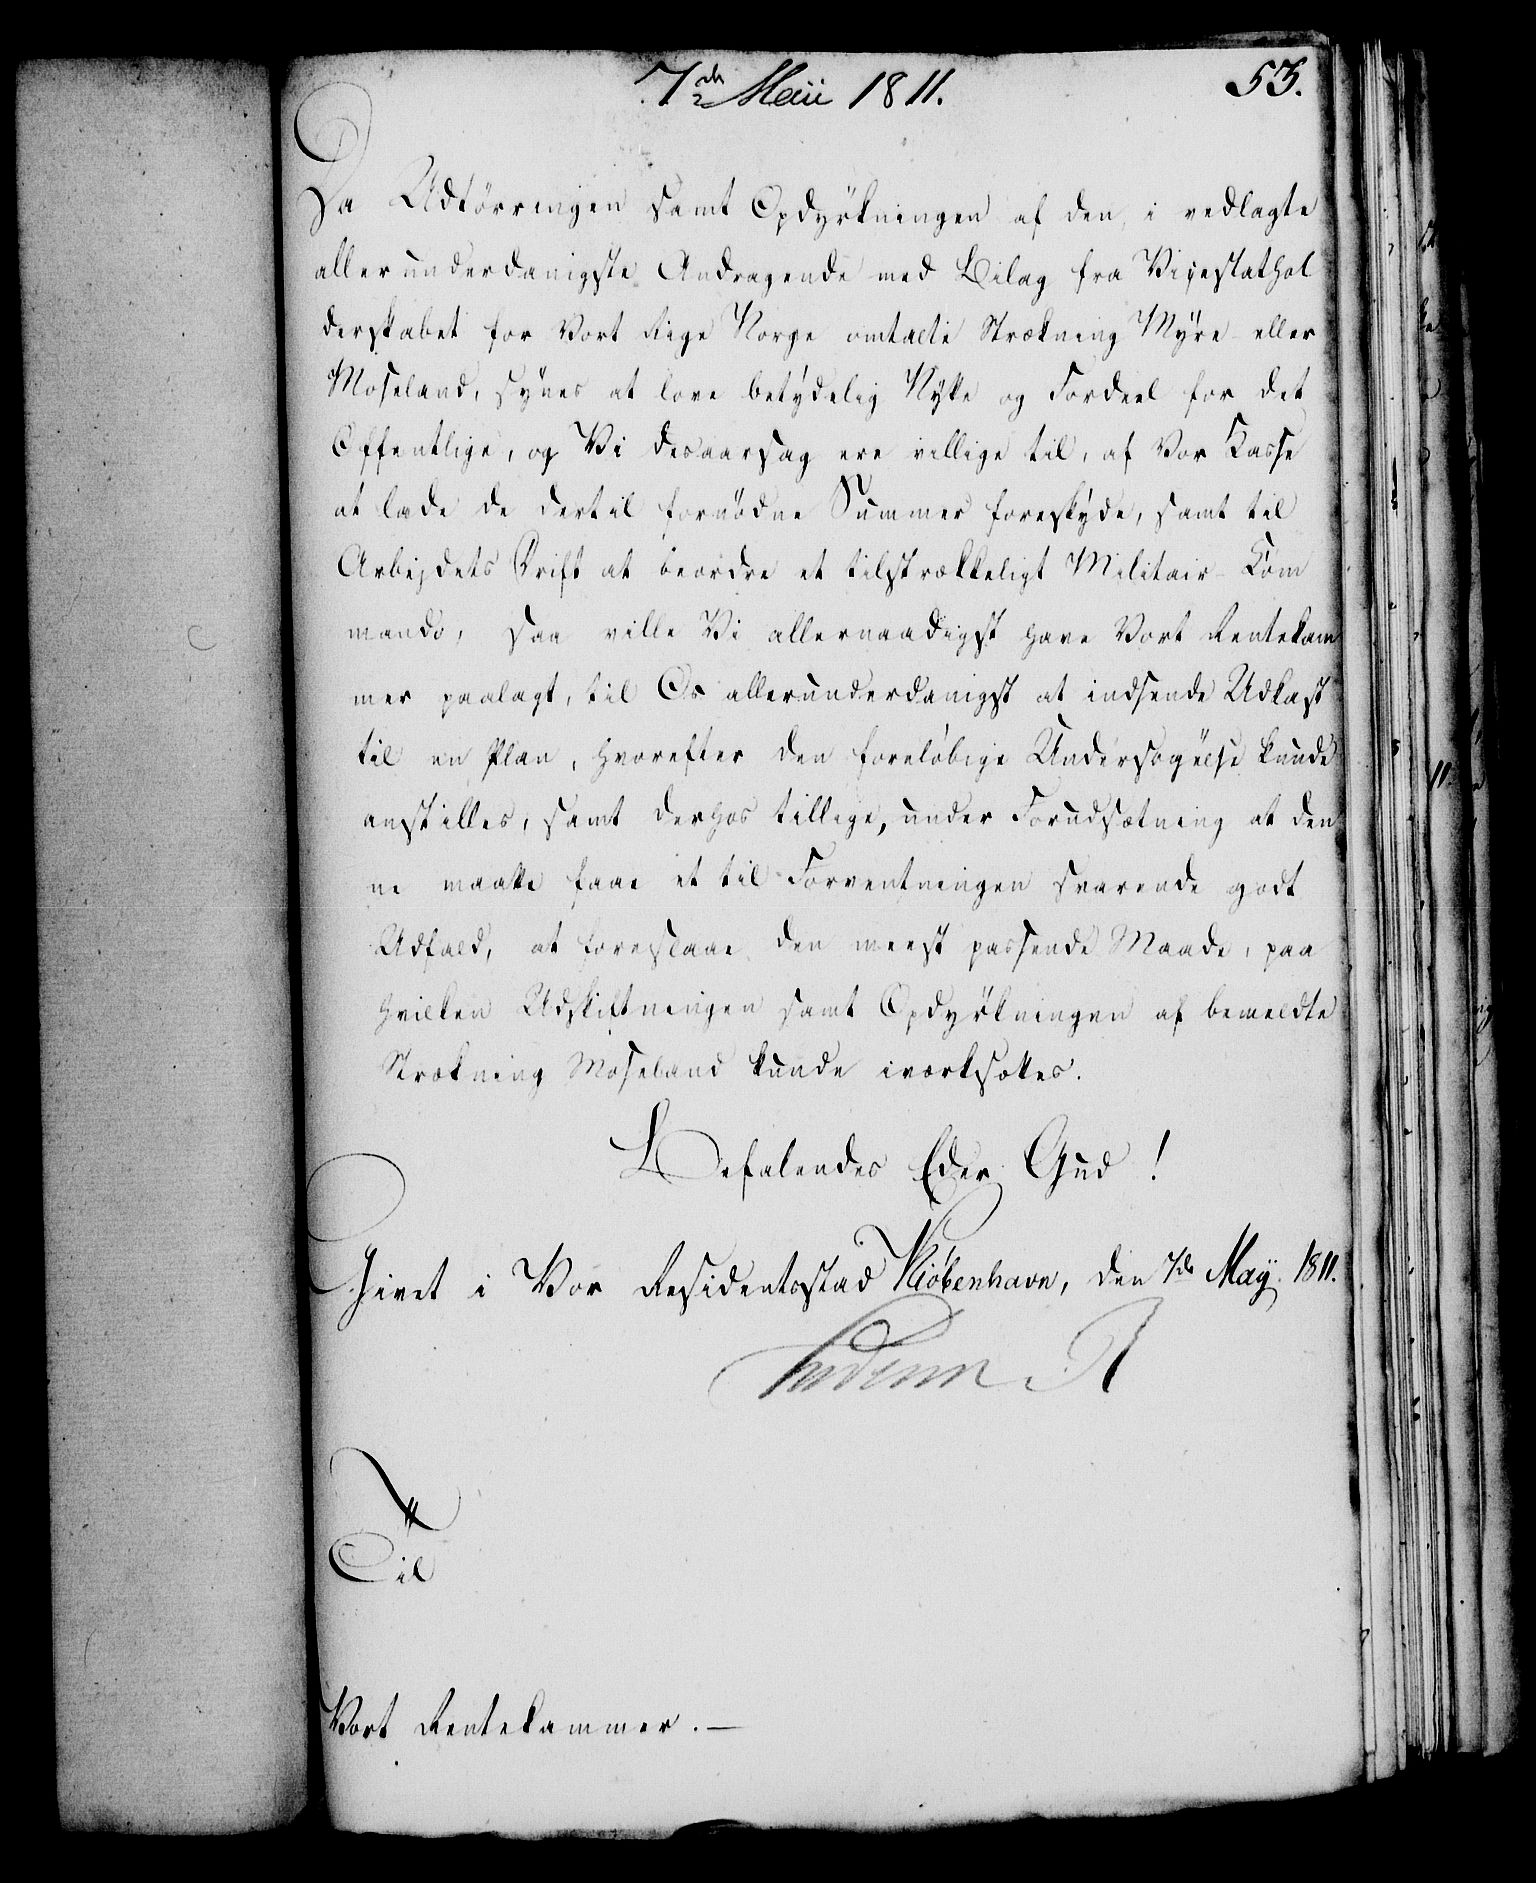 7de Maii 1811.
53.
Da Udtörringen samt Opdyrkningen af den, i vedlagte
allerunderdanigste Andragende med Bilag fra Vicestathol
derskabet for Vort Rige Norge omtalte Strækning Myre- eller
Moseland, synes at love betydelig Nytte og Fordeel for det
Offentlige, og Vi desaarsag ere villige til, af Vor Kasse
at lade de dertil fornödne Summer foreskyde, samt til
Arbejdets Drift at beordre et tilstrækkeligt Militair-Kom
mando, saa ville Vi allernaadigst have Vort Rentekam
mer paalagt, til Os allerunderdanigst at indsende Udkast
til en Plan, hvorefter den forelöbige Undersögelse kunde
anstilles, samt derhos tillige, under Forudsætning at den
ne maatte faae et til Forventningen svarende godt
Udfald, at foreslaae den meest passende Maade, paa
hvilken Udskiftningen samt Opdyrkningen af bemeldte
Strækning Moseland kunde iværksættes.
Befalendes Eder Gud!
Givet i Vor Residentsstad Kiöbenhavn, den 7de Maÿ. 1811.
Frederik R
Til
Vort Rentekammer. —